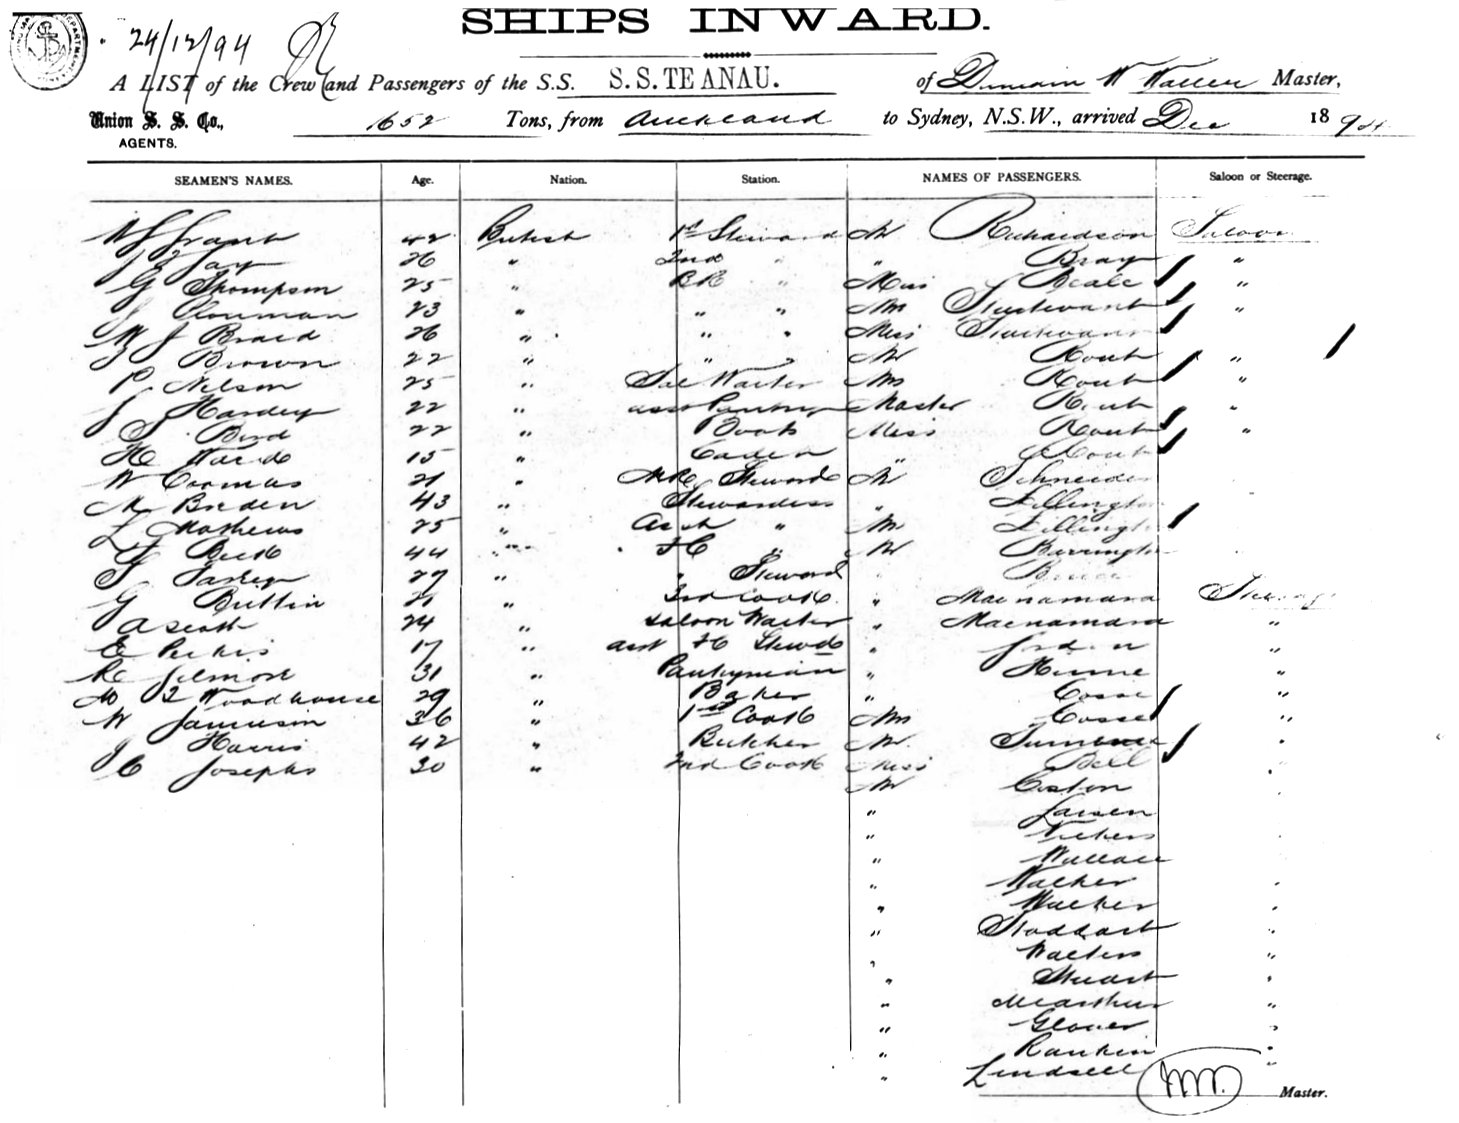 SHIPS INWARD.
24/12/94
A LIST of the Crew and Passengers of the S.S. S.S. TE ANAU. of W Master,
Union S. S. Co., 1652 Tons, from Auckland to Sydney, N.S.W., arrived Dec 1894
AGENTS.
SEAMEN'S NAMES. Age. Nation. Station. NAMES OF PASSENGERS. Saloon or Steerage.
Grant 42 British 1st Steward Mr Richardson Saloon
26 " 2nd " " Bray "
G Thompson 25 " BR " Miss Beale "
J 23 " " " Mrs Sturtevant "
W J Braid 26 " " " Miss Sturtevant
J Brown 22 " " " Mr Rout "
P Nelson 25 " Sal Waiter Mrs Rout "
J Hardey 22 " asst Pantry Master Rout "
Bird 22 " Boots Miss Rout "
H Ward 15 " Cadet " Rout
W Coomas 21 " Steward Mr Schneider
M Breden 43 " Stewardess "
L Mathews 25 " Asst " Mrs
44 " FC " Mr
27 " " Steward
G Buttin 21 " 3rd Cook " Macnamara Steerage
A Scott 24 " Saloon Waiter " Macnamara "
E Perkis 17 " asst FC Stewds " "
R Gilmore 31 " Pantryman " Hume "
Woodhouse 29 " Baker " Cosse "
W Jamieson 36 " 1st Cook Mrs Cosse "
J Harris 42 " Butcher Mr "
C Josephs 30 " 2nd Cook Miss Bell "
Mr Coston
" Larsen
" Vickers
" Wallace
" Walker
" Walker
" Stoddart
" Walters "
" Stuart
" McArthur "
" Glover
" Rankin
" Lindsell "
Master.